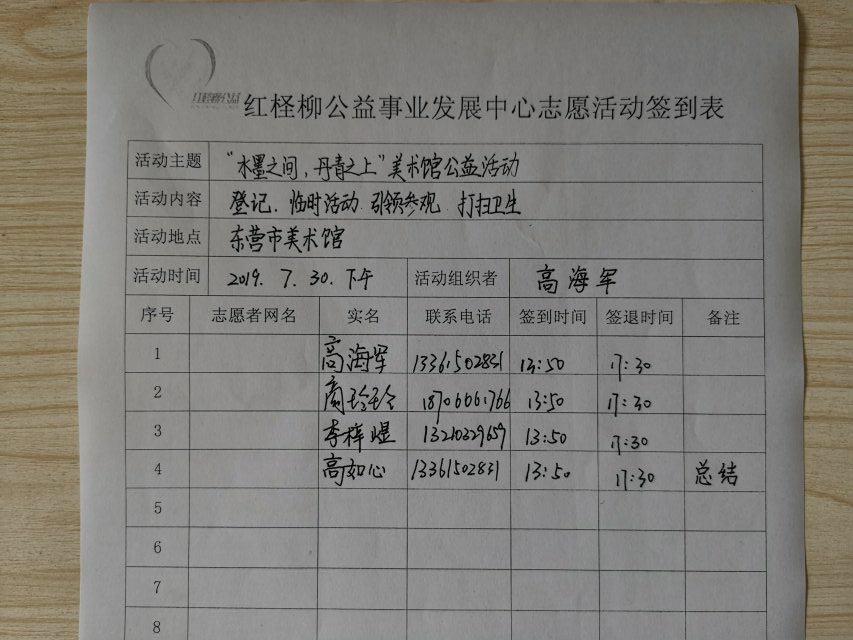 红柽柳公益
红柽柳公益事业发展中心志愿活动签到表
活动主题 “水墨之间，丹青之上”美术馆公益活动
活动内容 登记、临时活动、引领参观、打扫卫生
活动地点 东营市美术馆
活动时间 2019.7.30.下午 活动组织者 高海军
序号 志愿者网名 实名 联系电话 签到时间 签退时间 备注
1 高海军 13361502831 13:50 17:30
2 商玲玲 18706661766 13:50 17:30
3 李梓煜 13210329659 13:50 17:30
4 高如心 13361502831 13:50 17:30 总结
5
6
7
8